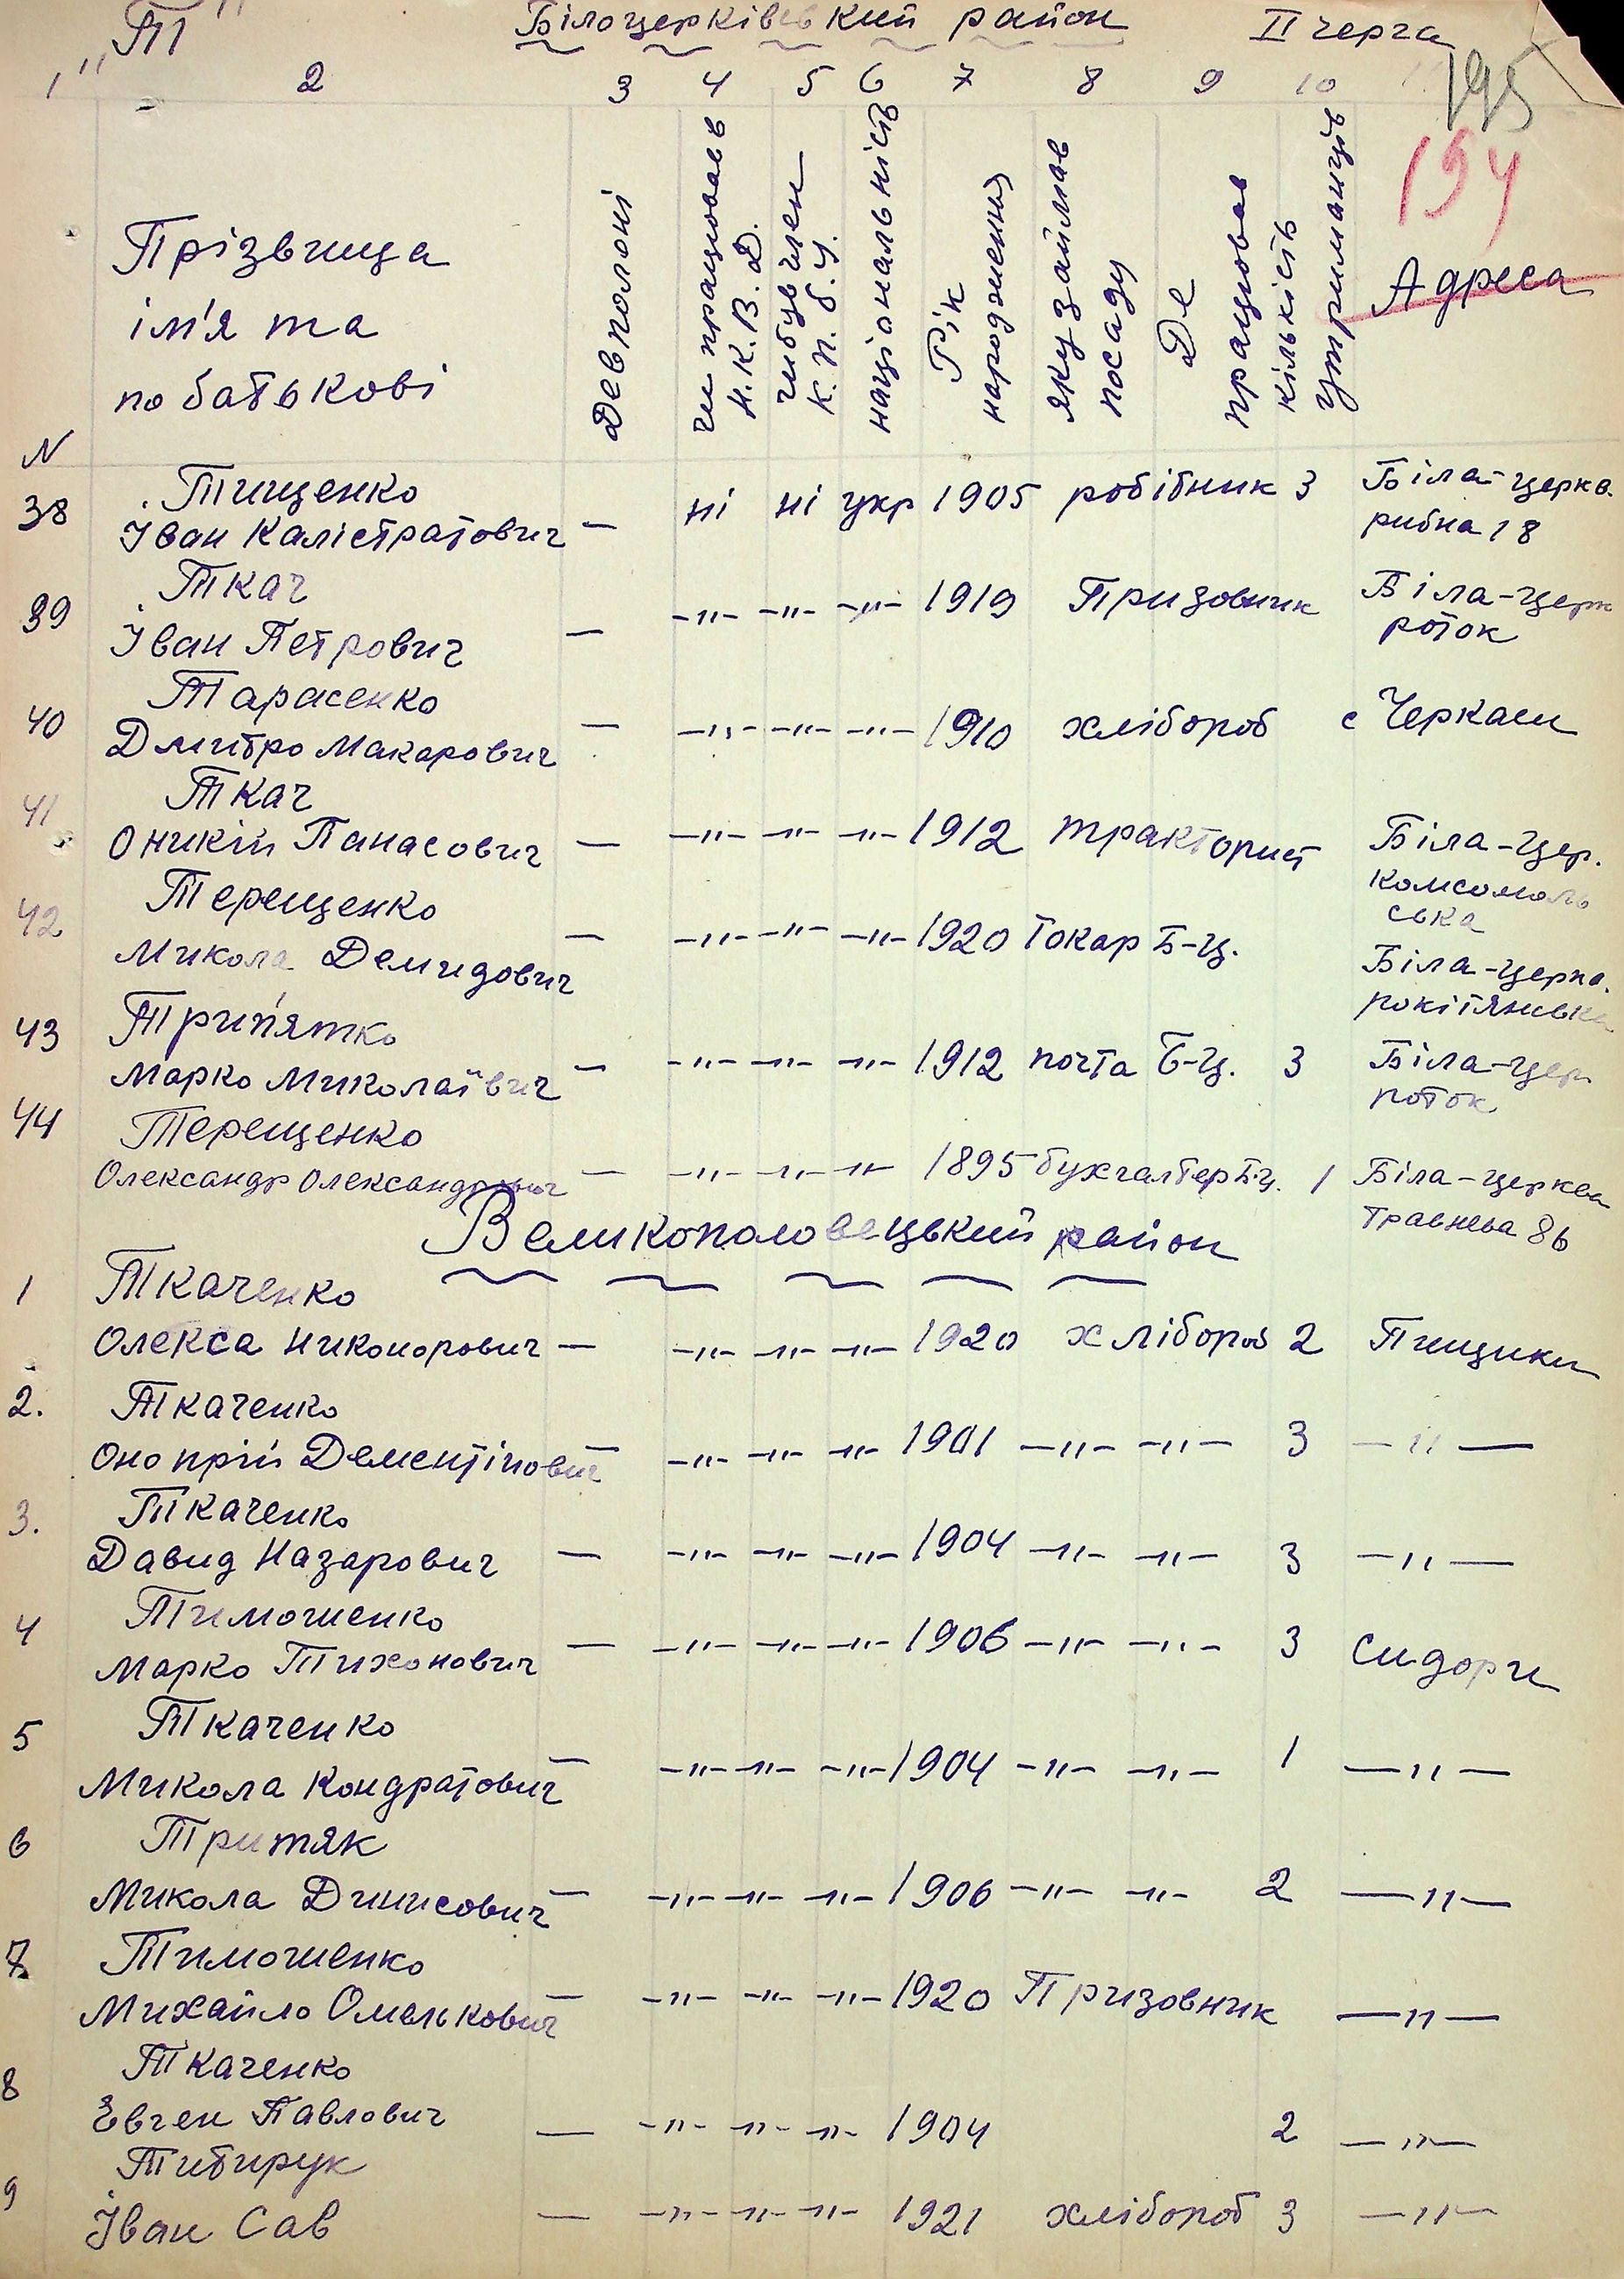 „Т" Білоцерківський район II черга
1 2 3 4 5 6 7 8 9 10
195
194
N Прізвища ім'я та по батькові Де в полоні чи працював в Н.К.В.Д. чи був член К.П.б.У. національність Рік народження яку займав посаду Де працював кількість утриманців Адреса
38 Тищенко
Іван Калістратович — ні ні укр 1905 робібник 3 Біла-церкв. рибна 18
39 Ткач
Іван Петрович — -"- -"- -"- 1919 Призовник Біла-церк роток
40 Тарасенко
Дмитро Макарович — -"- -"- -"- 1910 хлібороб с Черкаси
41 Ткач
Оникій Панасович — -"- -"- -"- 1912 тракторист Біла-цер. комсомоль ська
42 Терещенко
Микола Демидович — -"- -"- -"- 1920 токар Б-Ц. Біла-церкв. рокітянська
43 Трип'ятко
Марко Миколаївич — -"- -"- -"- 1912 почта Б-Ц. 3 Біла-цер. роток
44 Терещенко
Олександр Олександрович — -"- -"- -"- 1895 бухгалтер Б.ц. 1 Біла-церква Травнева 86
Великополовецький район
1 Ткаченко
Олекса Никонорович — -"- -"- -"- 1920 хлібороб 2 Пищики
2. Ткаченко
Онопрій Дементійович — -"- -"- -"- 1901 -"- -"- 3 -"-
3. Ткаченко
Давид Назарович — -"- -"- -"- 1904 -"- -"- 3 -"-
4 Тимошенко
Марко Тихонович — -"- -"- -"- 1906 -"- -"- 3 Сидори
5 Ткаченко
Микола Кондратович — -"- -"- -"- 1904 -"- -"- 1 -"-
6 Тритяк
Микола Динисович — -"- -"- -"- 1906 -"- -"- 2 -"-
7 Тимошенко
Михайло Омелькович — -"- -"- -"- 1920 Призовник -"-
8 Ткаченко
Евген Павлович — -"- -"- -"- 1904 2 -"-
9 Тибирук
Іван Сав — -"- -"- -"- 1921 хлібороб 3 -"-